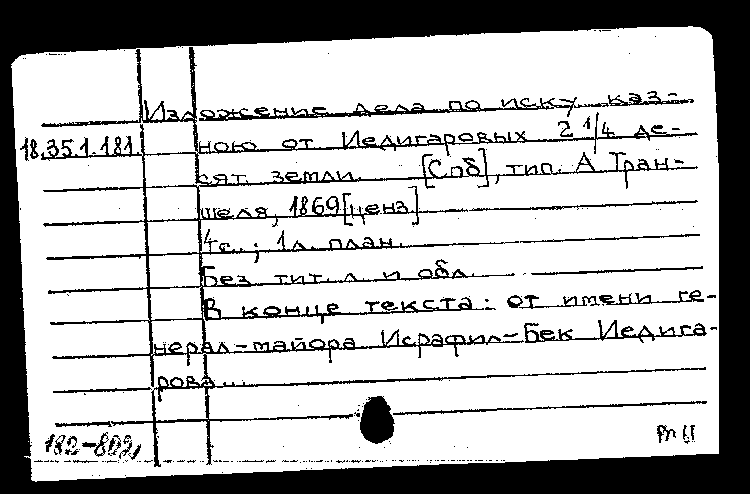 Изложение дела по иску каз-
18.35.1.181. ною от Иедигаровых 2 1/4 де-
сят. земли. [Спб], тип. А Тран-
шеля, 1869 [ценз.]
4 с.; 1 л. план.
Без тит. л. и обл.
В конце текста: от имени ге-
нерал-майора Исрафил-Бек Иедига-
рова...
182-802